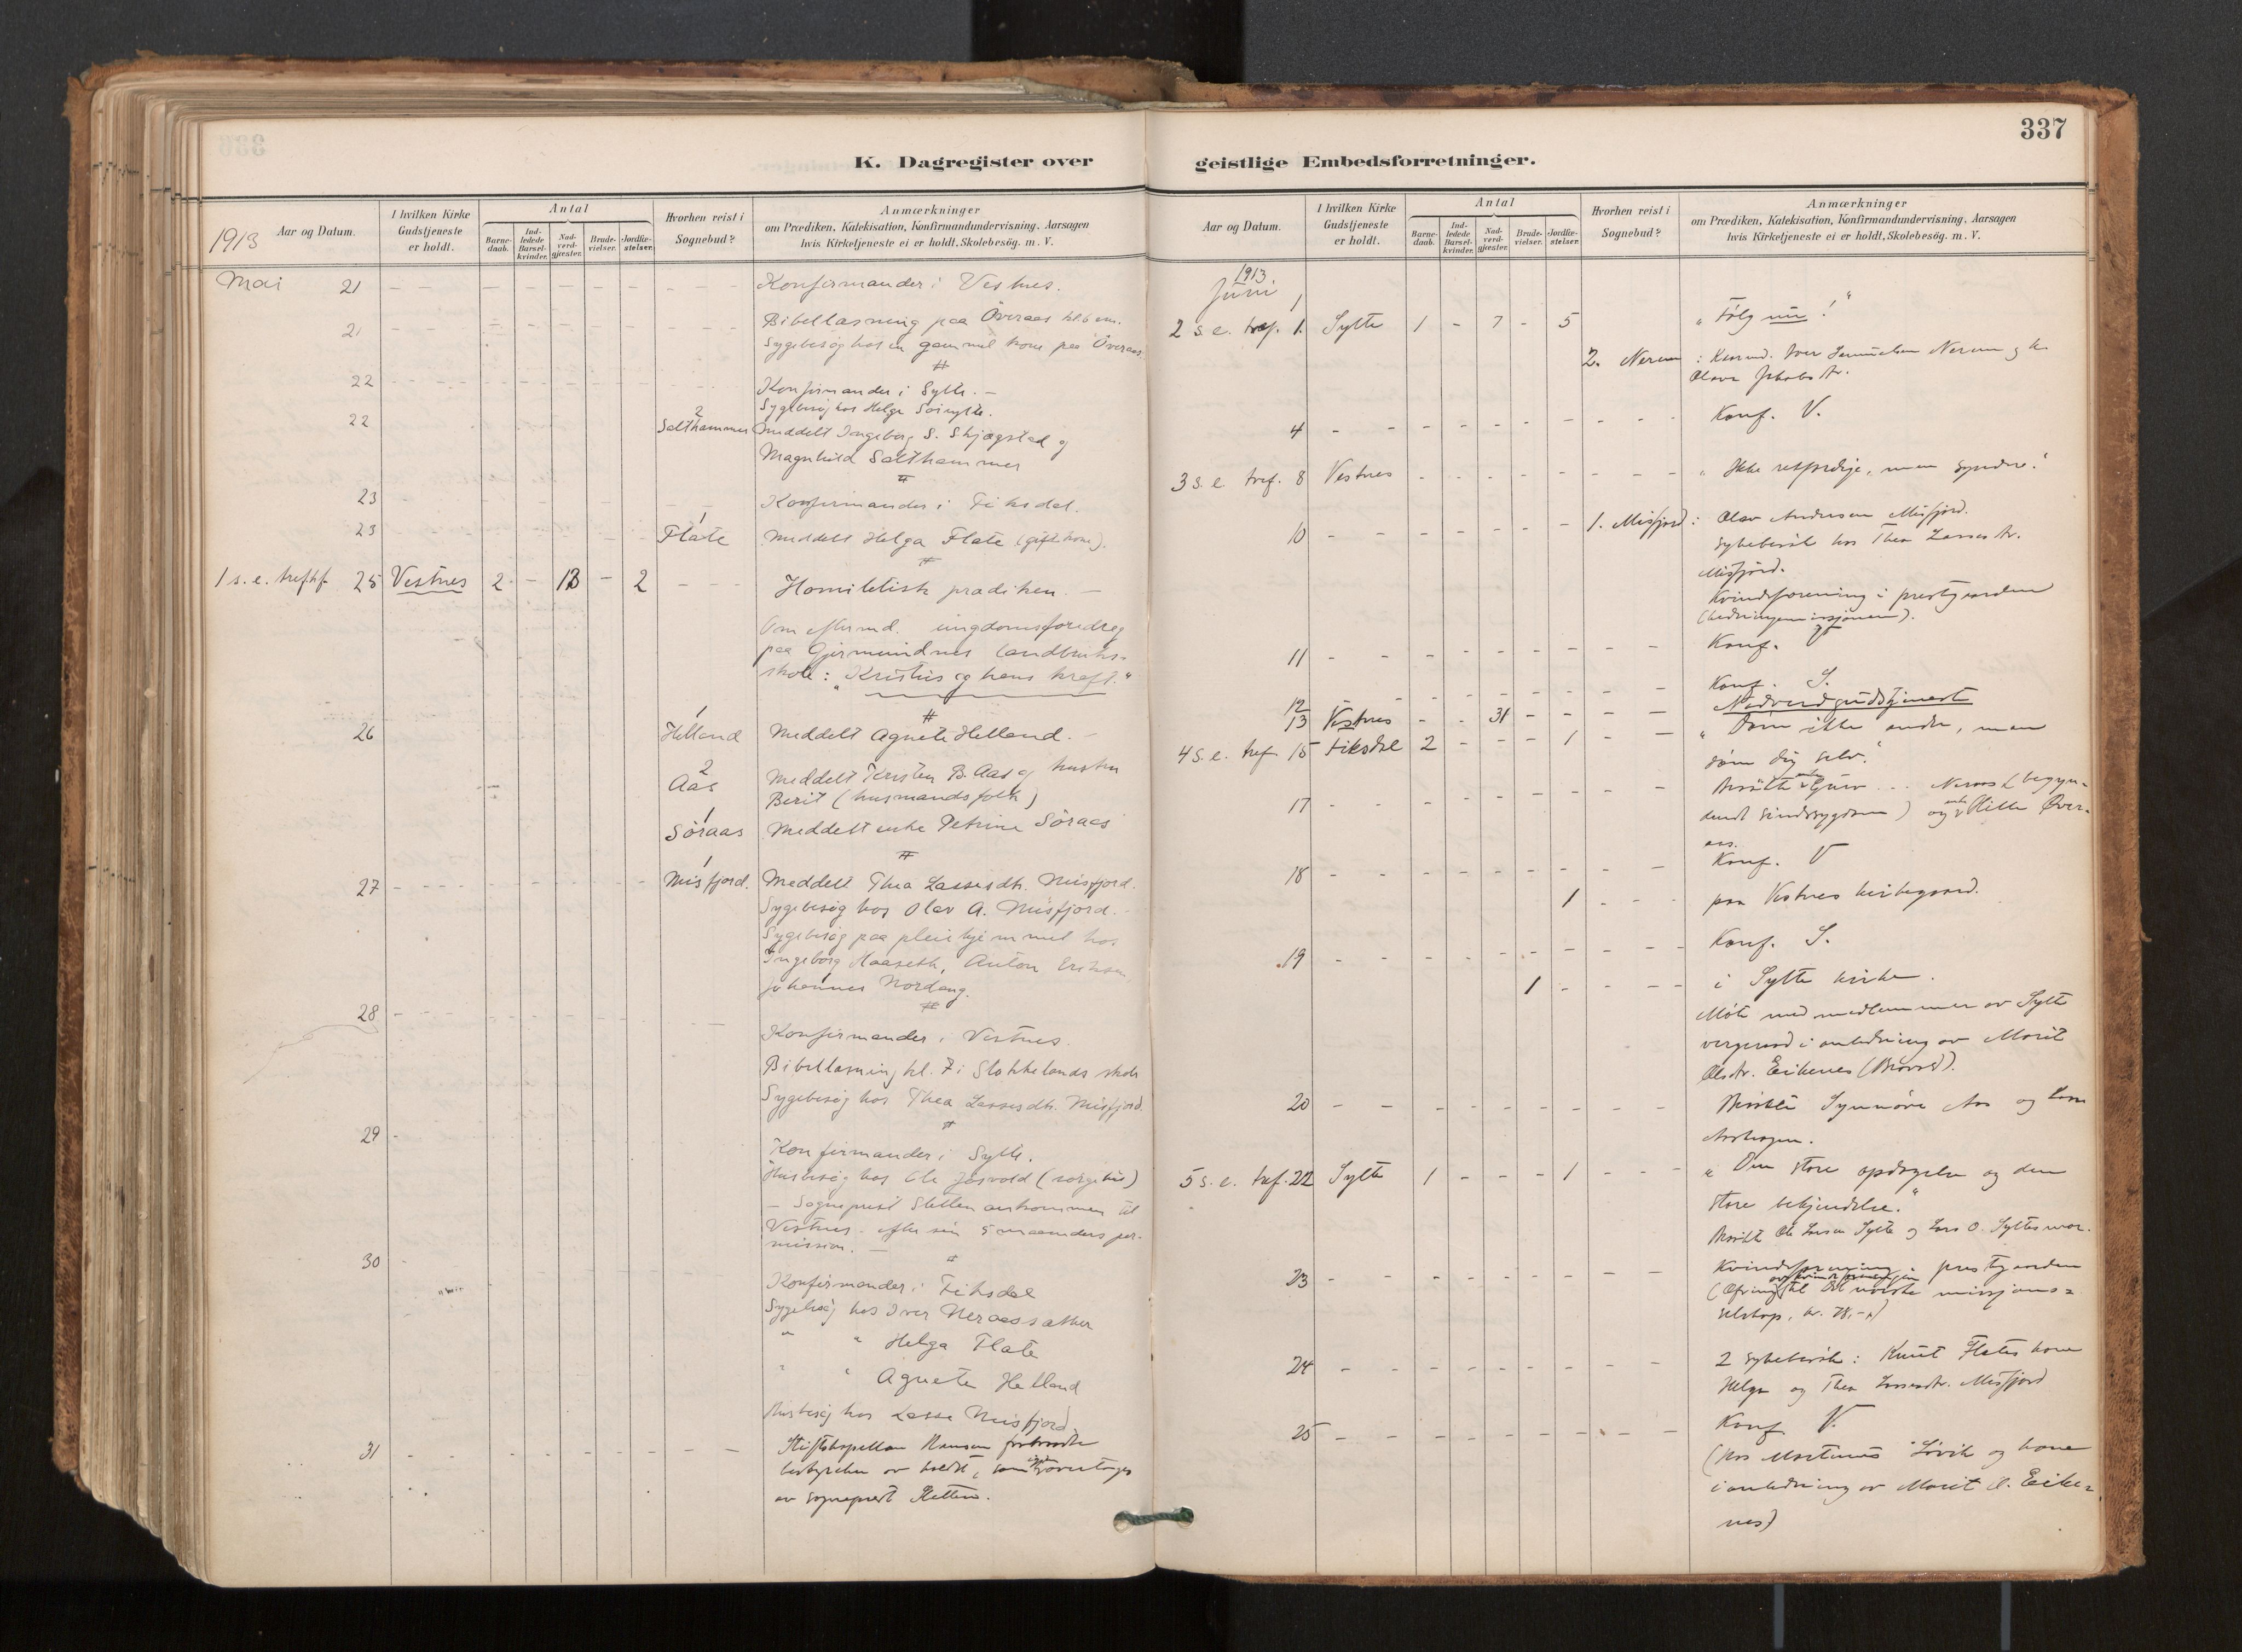 337
K. Dagregister over
geistlige Embedsforretninger.
1913 Aar og Datum.
I hvilken Kirke Gudstjeneste er holdt.
Antal
Barnedaab.
Indledede Barselkvinder.
Nadverdgjæster.
Brudevielser.
Jordfæstelser.
Hvorhen reist i Sognebud?
Anmærkninger
om Prædiken, Katekisation, Konfirmandundervisning, Aarsagen
hvis Kirketjeneste ei er holdt, Skolebesög. m. V.
Mai 21 Konfirmander i Vestnes.
21 Bibellæsning paa Överaas kl. 6 em.
Sygebesög hos en gammel kone paa Överaas.
22 Konfirmander i Sylte. –
Sygebesög hos Helge
22 2 Salthammer Meddelt Ingeborg S. Skjægstad og
Magnhild Salthammer
23 Konfirmander i Fiksdal.
23 1 Flate Meddelt Helga Flate (gift kone).
1 s. e. trefhf. 25 Vestnes 2 – 13 – 2 Homiletisk prædiken. –
Om eftermd. ungdomsforedrag
paa Gjermundnes landbruks-
skole: "Kristus og hans kraft."
26 1 Helland Meddelt Agnete Helland. –
2 Aas Meddelt Kristen B. Aas og hustru
Berit (husmandsfolk)
1 Söraas Meddelt enke Petrine Söraas
27 1 Misfjord. Meddelt Thea Lassesdtr. Misfjord.
Sygebesög hos Olav A. Misfjord. –
Sygebesög paa pleiehjemmet hos
Ingeborg Haaseth, Anton Eriksen,
Johannes Nordeng.
28 Konfirmander i Vestnes.
Bibellæsning kl. 7 i Stokkelands skole
Sygebesög hos Thea Lassesdtr. Misfjord.
29 Konfirmander i Sylte.
Husbesög hos Ole (sörgehus)
– Sogneprest Sletten ankommen til
Vestnes efter sin 5 maaneders per-
mission. –
30 Konfirmander i Fiksdal
Sygebesög hos Iver Neraassæther
" " Helga Flate
" " Agnete Helland
Husbesög hos Lasse Misfjord.
31 Stiftskapellan Hansen
av kaldet, som overtages
av sogneprest Sletten.
Aar og Datum.
I hvilken Kirke Gudstjeneste er holdt.
Antal
Barnedaab.
Indledede Barselkvinder.
Nadverdgjæster.
Brudevielser.
Jordfæstelser.
Hvorhen reist i Sognebud?
Anmærkninger
om Prædiken, Katekisation, Konfirmandundervisning, Aarsagen
hvis Kirketjeneste ei er holdt, Skolebesög. m. V.
1913
Juni
2 s. e. tref. 1. Sylte 1 – 7 – 5 "Følg mig!"
2. Nerem :
4 Konf. V.
3 s. e. tref. 8 Vestnes "Ikke retfærdige, men syndere."
10 1. Misfjord : Olav Andersen Misfjord.
Sykebesök hos Thea Lassesdtr.
Misfjord.
Kvindeforening i prestgaarden
(hedningemissjonen).
11 Konf.
12 Konf. S.
13 Vestnes – – 31 – Nadverdgudstjeneste
4 s. e. tref. 15 Fiksdal 2 – – – 1 "Døm ikke andre, men
døm dig selv."
17 (begyn-
dende sindssygdom) og
aas.
18 Konf. V
1 paa Vestnes kirkegaard.
19 Konf. S.
1 i Sylte kirke.
Møte med medlemmer av Sylte
vergeraad i anledning av Marit
Olsdtr. Eikenes
20 Aas og
5 s. e. tref. 22 Sylte 1 – – – 1 "Den store opdagelse og den
store bekjendelse."
Ole Larsen Sylte og Lars O.
23 Kvindeforening i prestgaarden
(Ofring til Det norske missjons-
selskap, kr. 78,-)
24 2 sykebesök: Knut Flates kone
Helga og Thea Lassesdtr. Misfjord
25 Konf. V.
(hos Martinus Lövik og kone
i anledning av Marit O. Eike-
nes)